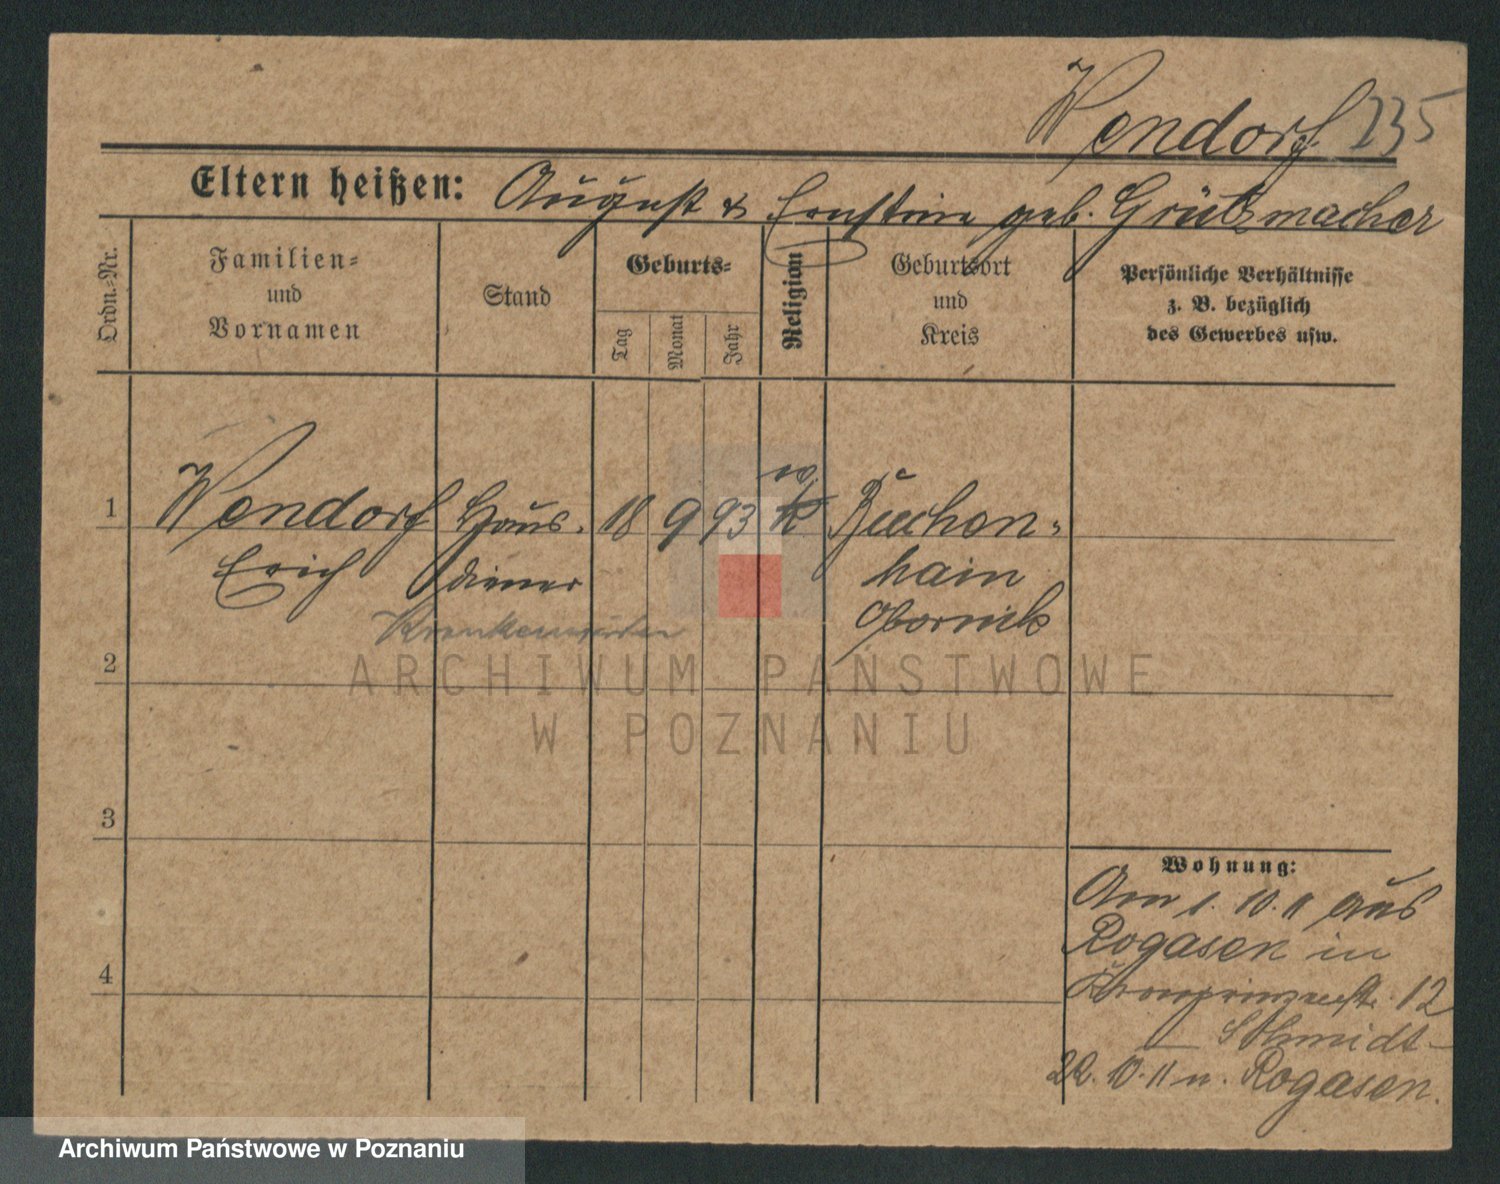 Wendorf 235
Eltern heißen: August & Ernstine geb. Grützmacher
Ordn.-Nr.
Familien-
und
Vornamen
Stand
Geburts-
Tag
Monat
Jahr
Religion
Geburtsort
und
Kreis
Persönliche Verhältnisse
z. B. bezüglich
des Gewerbes usw.
1 Wendorf Haus- 18 9 93 ev. Buchen-
Erich diener hain
Krankenwärter Obornik
2
3
4
Wohnung:
Am 1. 10. 11 aus
Rogasen in
Kronprinzenstr. 12
Schmidt
22. 10. 11 n. Rogasen.
ARCHIWUM PAŃSTWOWE
W POZNANIU
Archiwum Państwowe w Poznaniu